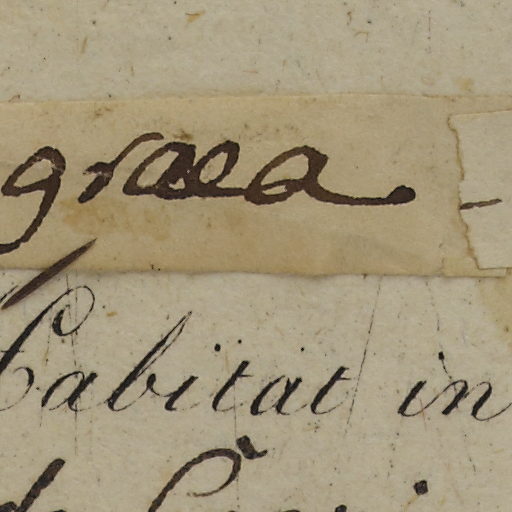 graea. -
Habitat in